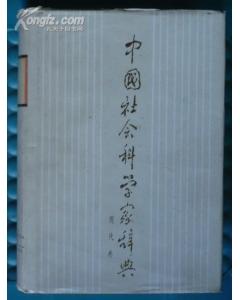 Kongfz.com
孔夫子旧书网
中國社会科学家辞典
现代卷